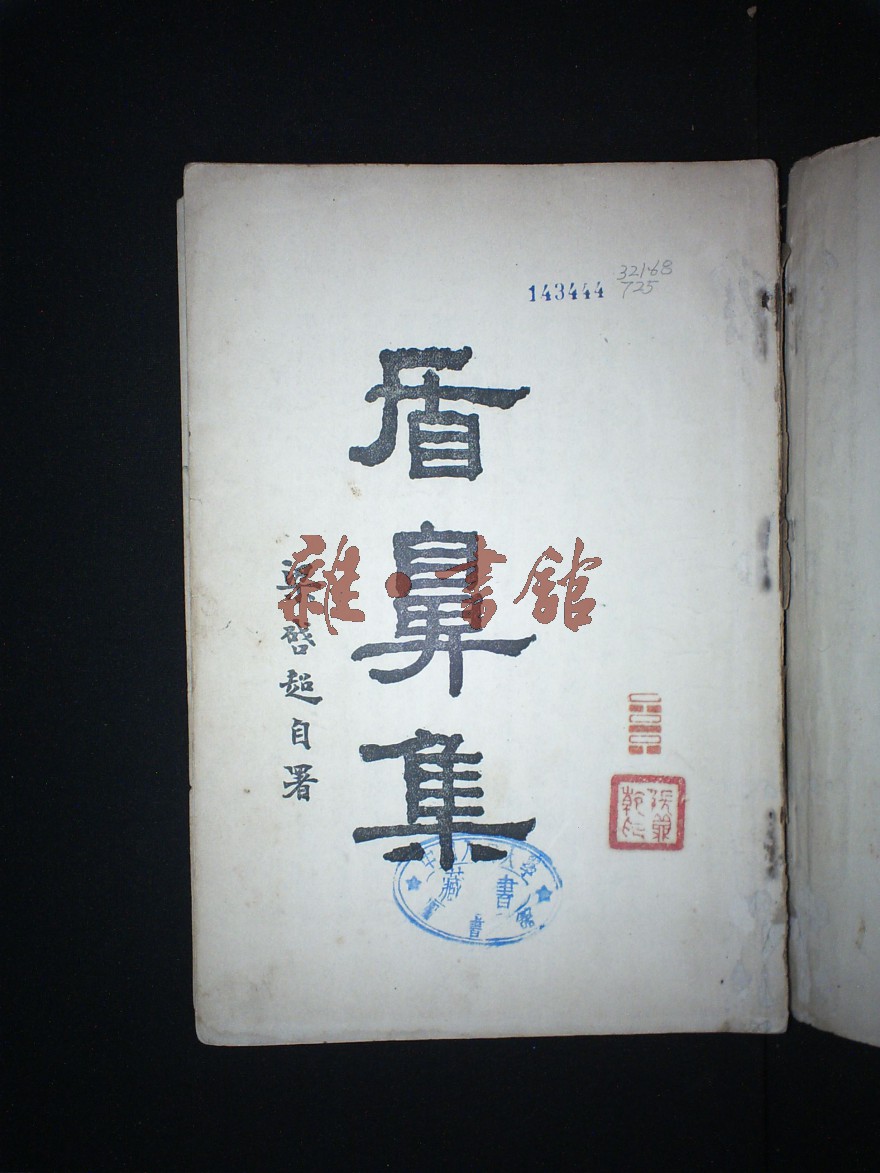 143444
32168
725
盾鼻集
梁啓超自署
雜·書館
藏書